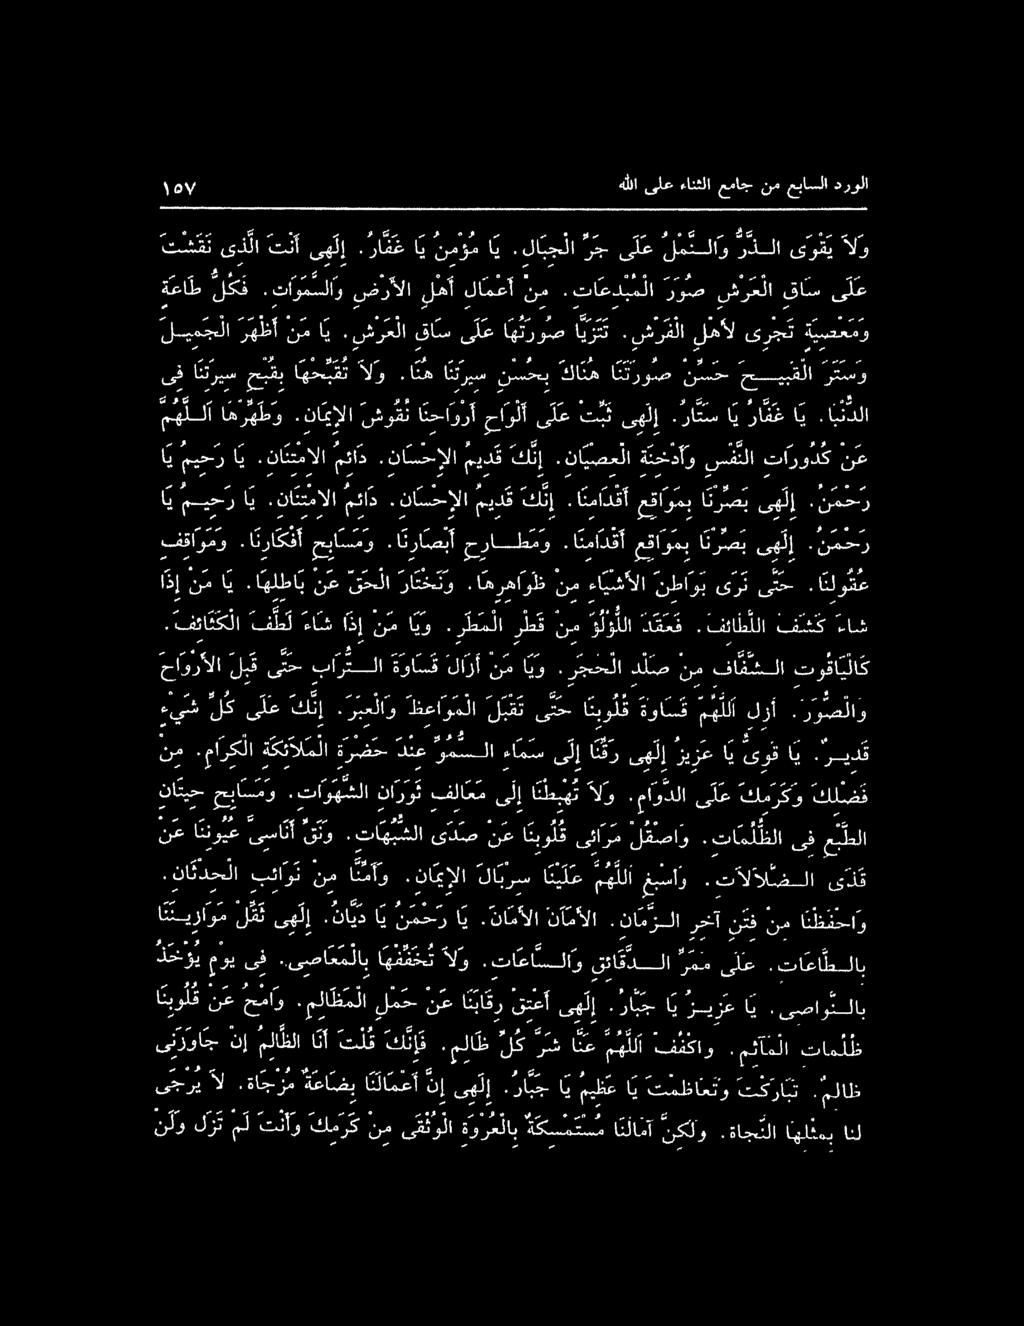 الورد السابع من جامع الثناء على الله ١٥٧
وَلاَ يَقْوَى الـذَّرُّ وَالـنَّمْلُ عَلَى جَرِّ الْجِبَالِ. يَا مُؤْمِنُ يَا غَفَّارُ. إِلَهِى أَنْتَ الَّذِى نَقَشْتَ
عَلَى سَاقِ الْعَرْشِ صُوَرَ الْمُبْدِعَاتِ. مِنْ أَعْمَالِ أَهْلِ الأَرْضِ وَالسَّمَوَاتِ. فَكُلُّ طَاعَةٍ
وَمَعْصِيَةٍ تَجْرِى لأَهْلِ الْفَرْشِ. تَتَزَيَّا صُورَتُهَا عَلَى سَاقِ الْعَرْشِ. يَا مَنْ أَظْهَرَ الْجَمِيـلَ
وَسَتَرَ الْقَبِيـــحَ حَسِّنْ صُورَتَنَا هُنَاكَ بِحُسْنِ سِيرَتِنَا هُنَا. وَلاَ تُقَبِّحْهَا بِقُبْحِ سِيرَتِنَا فِى
الدُّنْيَا. يَا غَفَّارُ يَا سَتَّارُ. إِلَهِى ثَبِّتْ عَلَى أَلْوَاحِ أَرْوَاحِنَا نُقُوشَ الإِيمَانِ. وَطَهِّرْهَا اَلـلَّهُمَّ
عَنْ كُدُورَاتِ النَّفْسِ وَأَدْخِنَةِ الْعِصْيَانِ. إِنَّكَ قَدِيمُ الإِحْسَانِ. دَائِمُ الاِمْتِنَانِ. يَا رَحِيمُ يَا
رَحْمَنُ. إِلَهِى بَصِّرْنَا بِمَوَاقِعِ أَقْدَامِنَا. إِنَّكَ قَدِيمُ الإِحْسَانِ. دَائِمُ الاِمْتِنَانِ. يَا رَحِيـمُ يَا
رَحْمَنُ. إِلَهِى بَصِّرْنَا بِمَوَاقِعِ أَقْدَامِنَا. وَمَطَـــارِحِ أَبْصَارِنَا. وَمَسَابِحِ أَفْكَارِنَا. وَمَوَاقِفِ
عُقُولِنَا. حَتَّى نَرَى بَوَاطِنَ الأَشْيَاءِ مِنْ ظَوَاهِرِهَا. وَنَخْتَارَ الْحَقَّ عَنْ بَاطِلِهَا. يَا مَنْ إِذَا
شَاءَ كَشَفَ اللَّطَائِفَ. فَعَقَدَ اللُّؤْلُؤَ مِنْ قَطْرِ الْمَطَرِ. وَيَا مَنْ إِذَا شَاءَ لَطَّفَ الْكَثَائِفَ.
كَالْيَاقُوتِ الـشَّفَّافِ مِنْ صَلْدِ الْحَجَرِ. وَيَا مَنْ أَزَالَ قَسَاوَةَ الـــتُّرَابِ حَتَّى قَبِلَ الأَرْوَاحَ
وَالصُّوَرَ. أَزِلِ اَللَّهُمَّ قَسَاوَةَ قُلُوبِنَا حَتَّى تَقْبَلَ الْمَوَاعِظَ وَالْعِبَرَ. إِنَّكَ عَلَى كُلِّ شَيْءٍ
قَدِيـرٌ. يَا قَوِىُّ يَا عَزِيزُ إِلَهِى رَقِّنَا إِلَى سَمَاءِ الـــسُّمُوِّ عِنْدَ حَضْرَةِ الْمَلاَئِكَةِ الْكِرَامِ. مِنْ
فَضْلِكَ وَكَرَمِكَ عَلَى الدَّوَامِ. وَلاَ تُهْبِطْنَا إِلَى مَعَالِفِ ثَوَرَانِ الشَّهَوَاتِ. وَمَسَابِحِ حِيتَانِ
الطَّبْعِ فِى الظُّلُمَاتِ. وَاصْقُلْ مَرَائِى قُلُوبِنَا عَنْ صَدَى الشُّبُهَاتِ. وَنَقِّ أَنَاسِىَّ عُيُونِنَا عَنْ
قَذَى الـــضَّلاَلاَتِ. وَأَسْبِغِ اَللَّهُمَّ عَلَيْنَا سِرْبَالَ الإِيمَانِ. وَآمِنَّا مِنْ نَوَائِبِ الْحَدَثَانِ.
وَاحْفَظْنَا مِنْ فِتَنِ آخِرِ الـزَّمَانِ. الأَمَانَ الأَمَانَ. يَا رَحْمَنُ يَا دَيَّانُ. إِلَهِى ثَقِّلْ مَوَازِيـنَنَا
بِالـــطَّاعَاتِ. عَلَى مَمَرِّ الـــدَّقَائِقِ وَالـــسَّاعَاتِ. وَلاَ تُخَفِّفْهَا بِالْمَعَاصِى. فِى يَوْمٍ يُؤْخَذُ
بِالـنَّوَاصِى. يَا عَزِيـزُ يَا جَبَّارُ. إِلَهِى أَعْتِقْ رِقَابَنَا عَنْ حَمْلِ الْمَظَالِمِ. وَامْحُ عَنْ قُلُوبِنَا
ظُلُمَاتِ الْمَآثِمِ. وَاكْفُفْ اَللَّهُمَّ عَنَّا شَرَّ كُلِّ ظَالِمٍ. فَإِنَّكَ قُلْتَ أَنَا الظَّالِمُ إِنْ جَاوَزَنِى
ظَالِمٌ. تَبَارَكْتَ وَتَعَاظَمْتَ يَا عَظِيمُ يَا جَبَّارُ. إِلَهِى إِنَّ أَعْمَالَنَا بِضَاعَةٌ مُزْجَاةٌ. لاَ يُرْجَى
لَنَا بِمِثْلِهَا النَّجَاةُ. وَلَكِنَّ آمَالَنَا مُسْتَمْسِكَةٌ بِالْعُرْوَةِ الْوُثْقَى مِنْ كَرَمِكَ وَأَنْتَ لَمْ تَزَلْ وَلَنْ